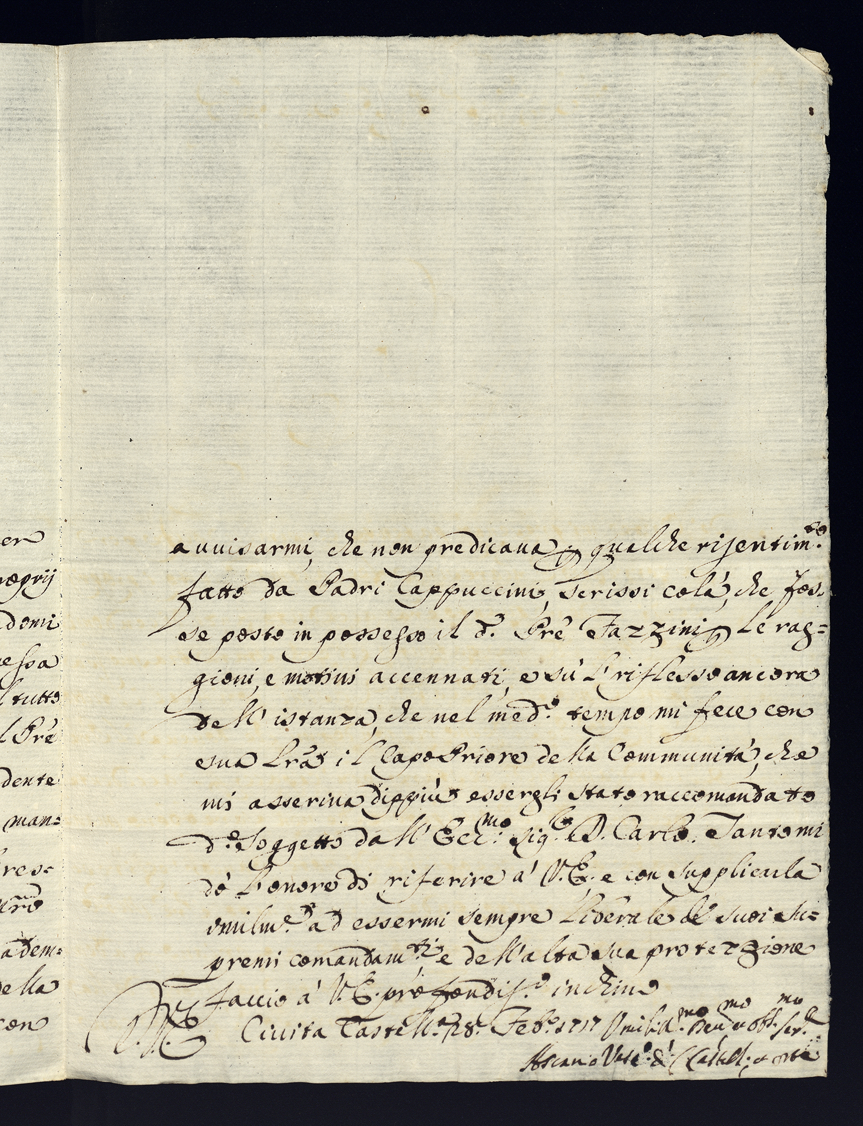 er
proprij
domi
essa
l tutto
l Pre
dente
man=
res=
adem=
della
con
auuisarmi, che non predicaua p qualche risentim.to
fatto da Padri Cappuccini, scrissi colà, che fos=
se posto in possesso il d.o Prê Fazzini p le rag=
gioni, e motiui accennati, e sù l'riflesso ancora
dell'istanza, che nel med.o tempo mi fece con
sua Lrã il Capo Priore della Communità, che
mi asseriua dippiù essergli stato raccomandato
d.o Soggetto da M.r Ecc.mo Sig.r D. Carlo. Tanto mi
dò l'onore di riferire à V.E. e con supplicarla
vmilm.e ad essermi sempre liberale de suoi su=
premi comandam.ti e dell'alta sua protezzione
faccio à V.E. profondiss.o inchino
D.V.E.
Ciuita Castell.a 18. Feb.o 1717 Vmiliss.mo Deu.mo et obb.mo Ser.re
Ascanio Vesc.o di C. Castell. et Orte